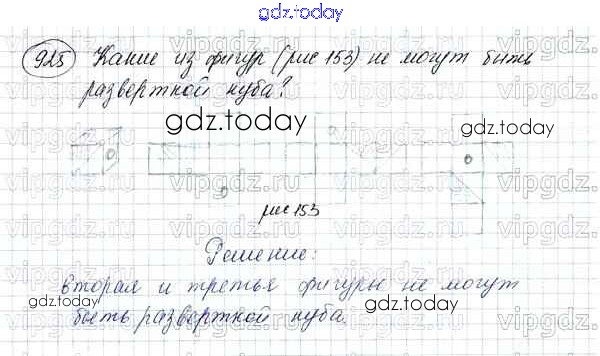 gdz.today
925 Какие из фигур (рис 153) не могут быть
разверткой куба?
gdz.today
gdz.today
рис 153
Решение:
вторая и третья фигуры не могут
быть разверткой куба.
gdz.today
gdz.today